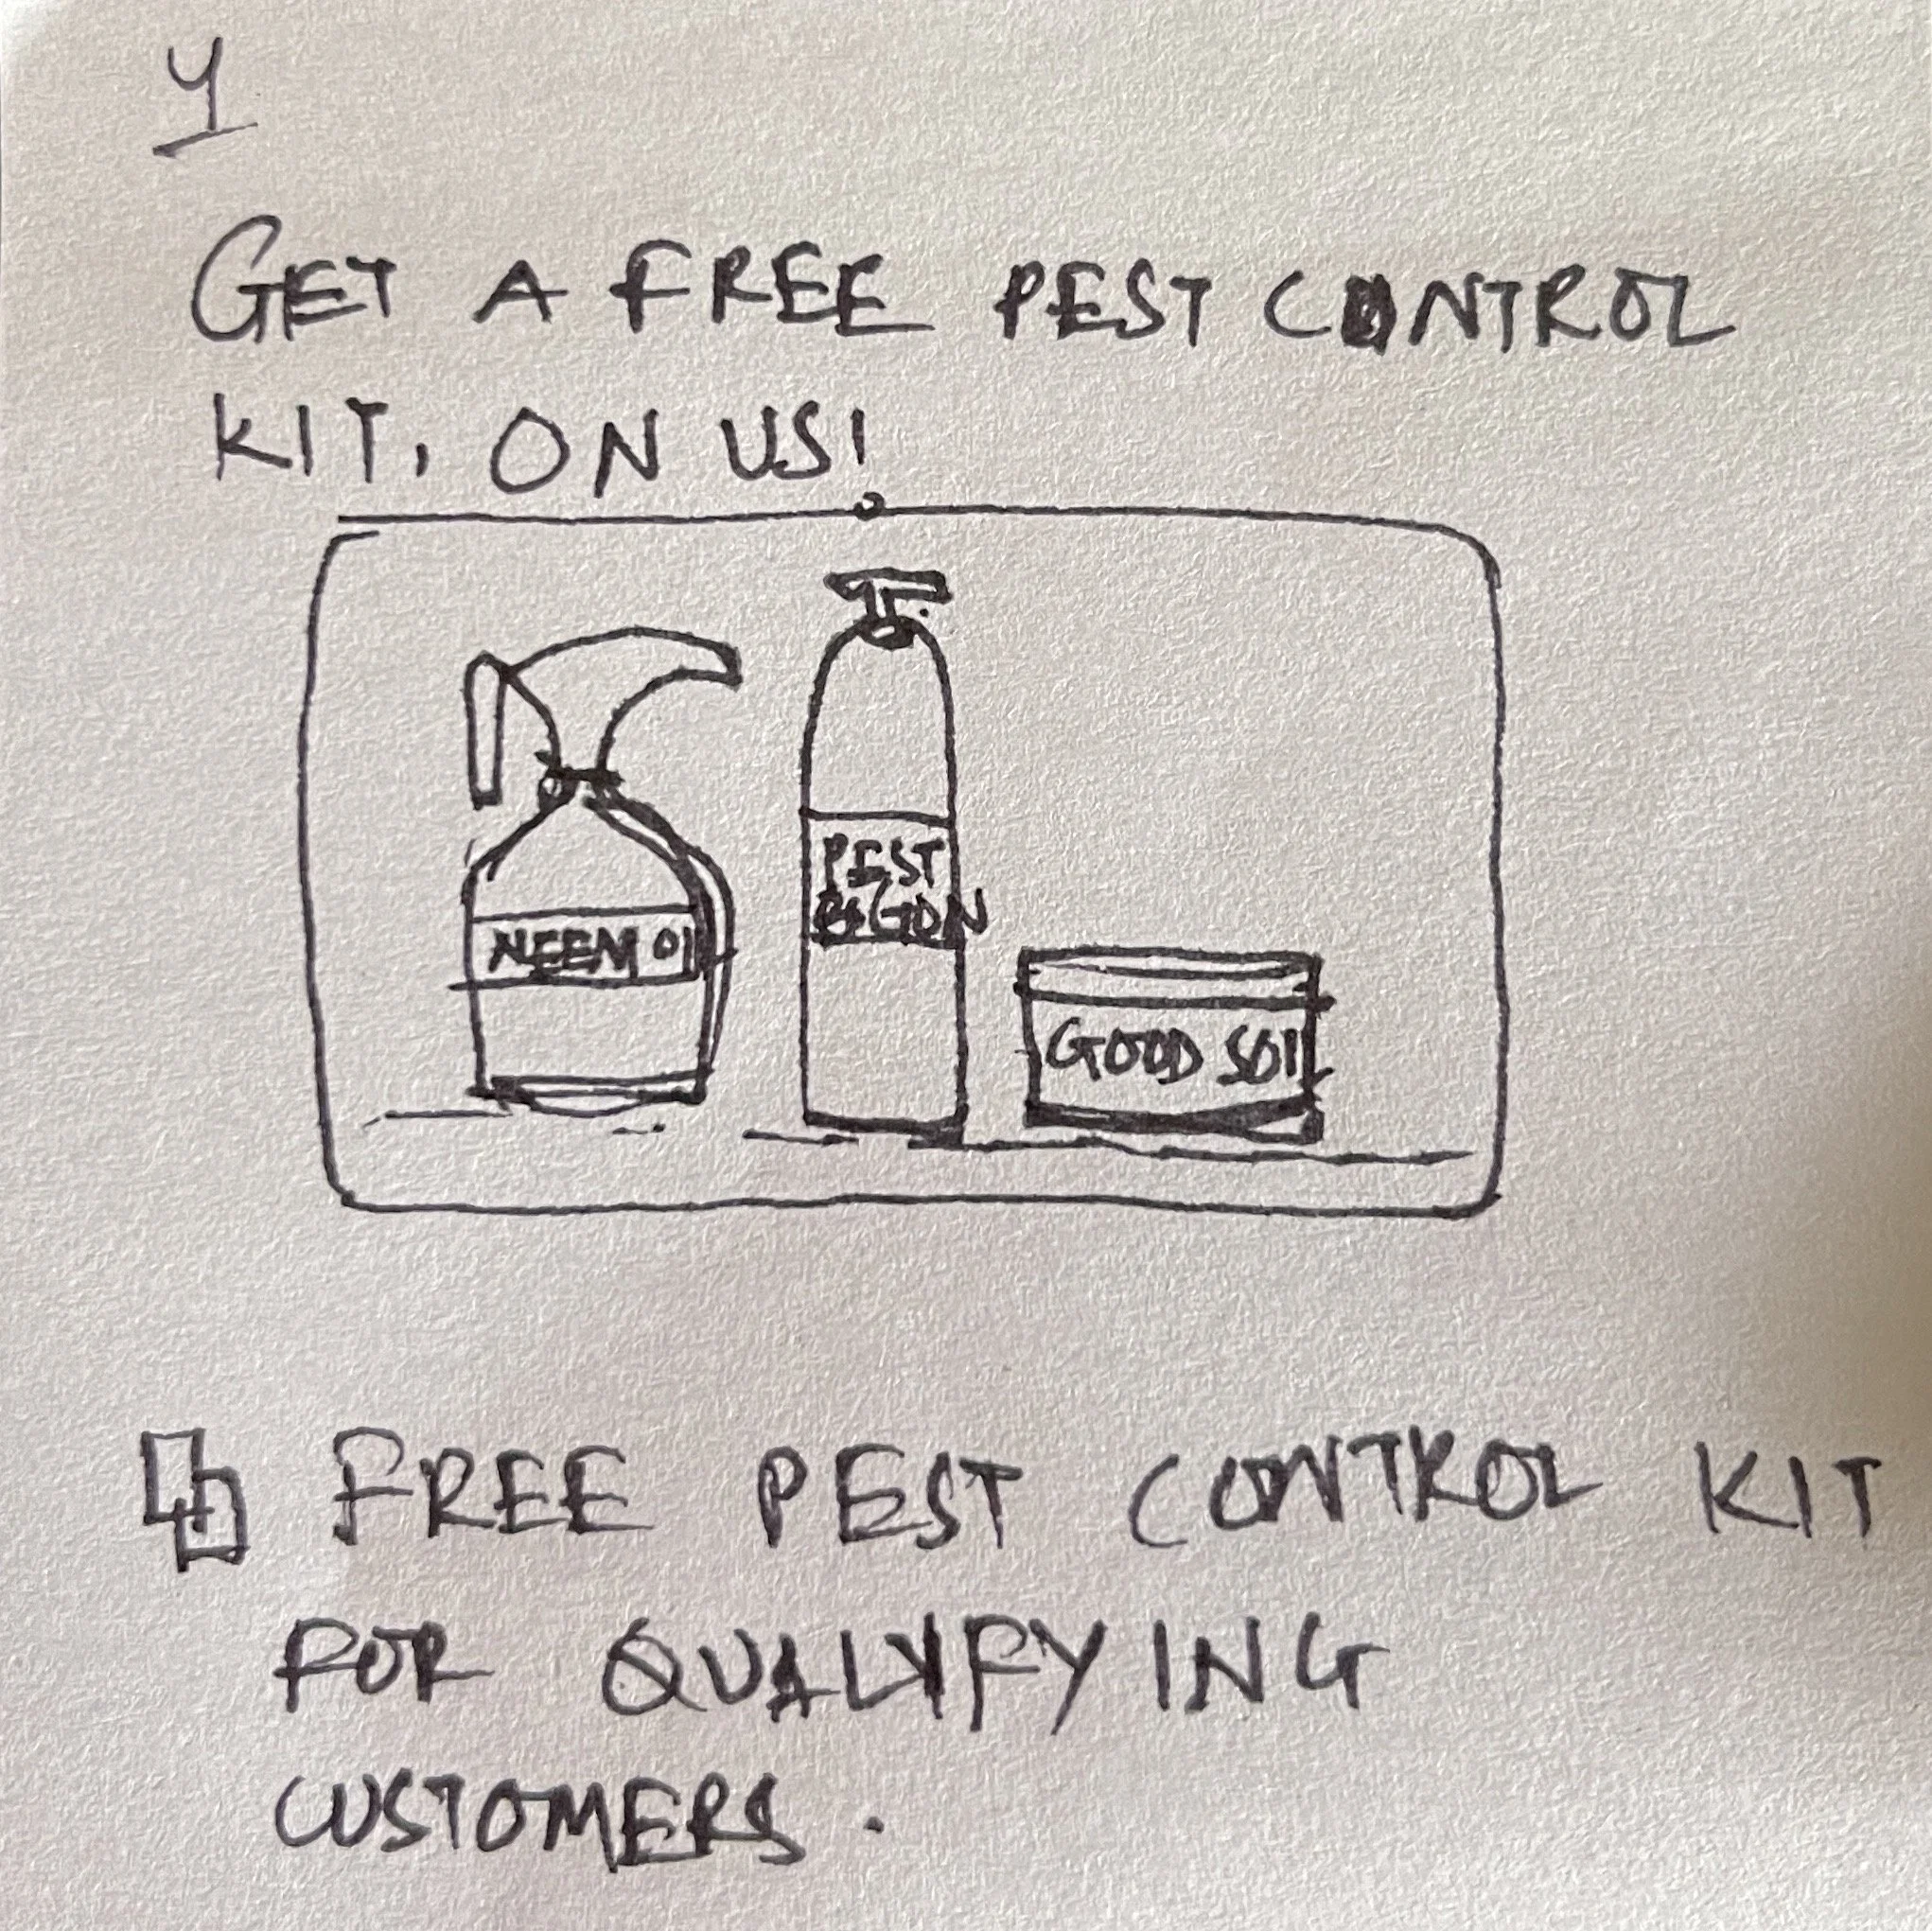 4
GET A FREE PEST CONTROL
KIT, ON US!
PEST
BGON
NEEM OIL
GOOD SOIL
FREE PEST CONTROL KIT
FOR QUALIFYING
CUSTOMERS.